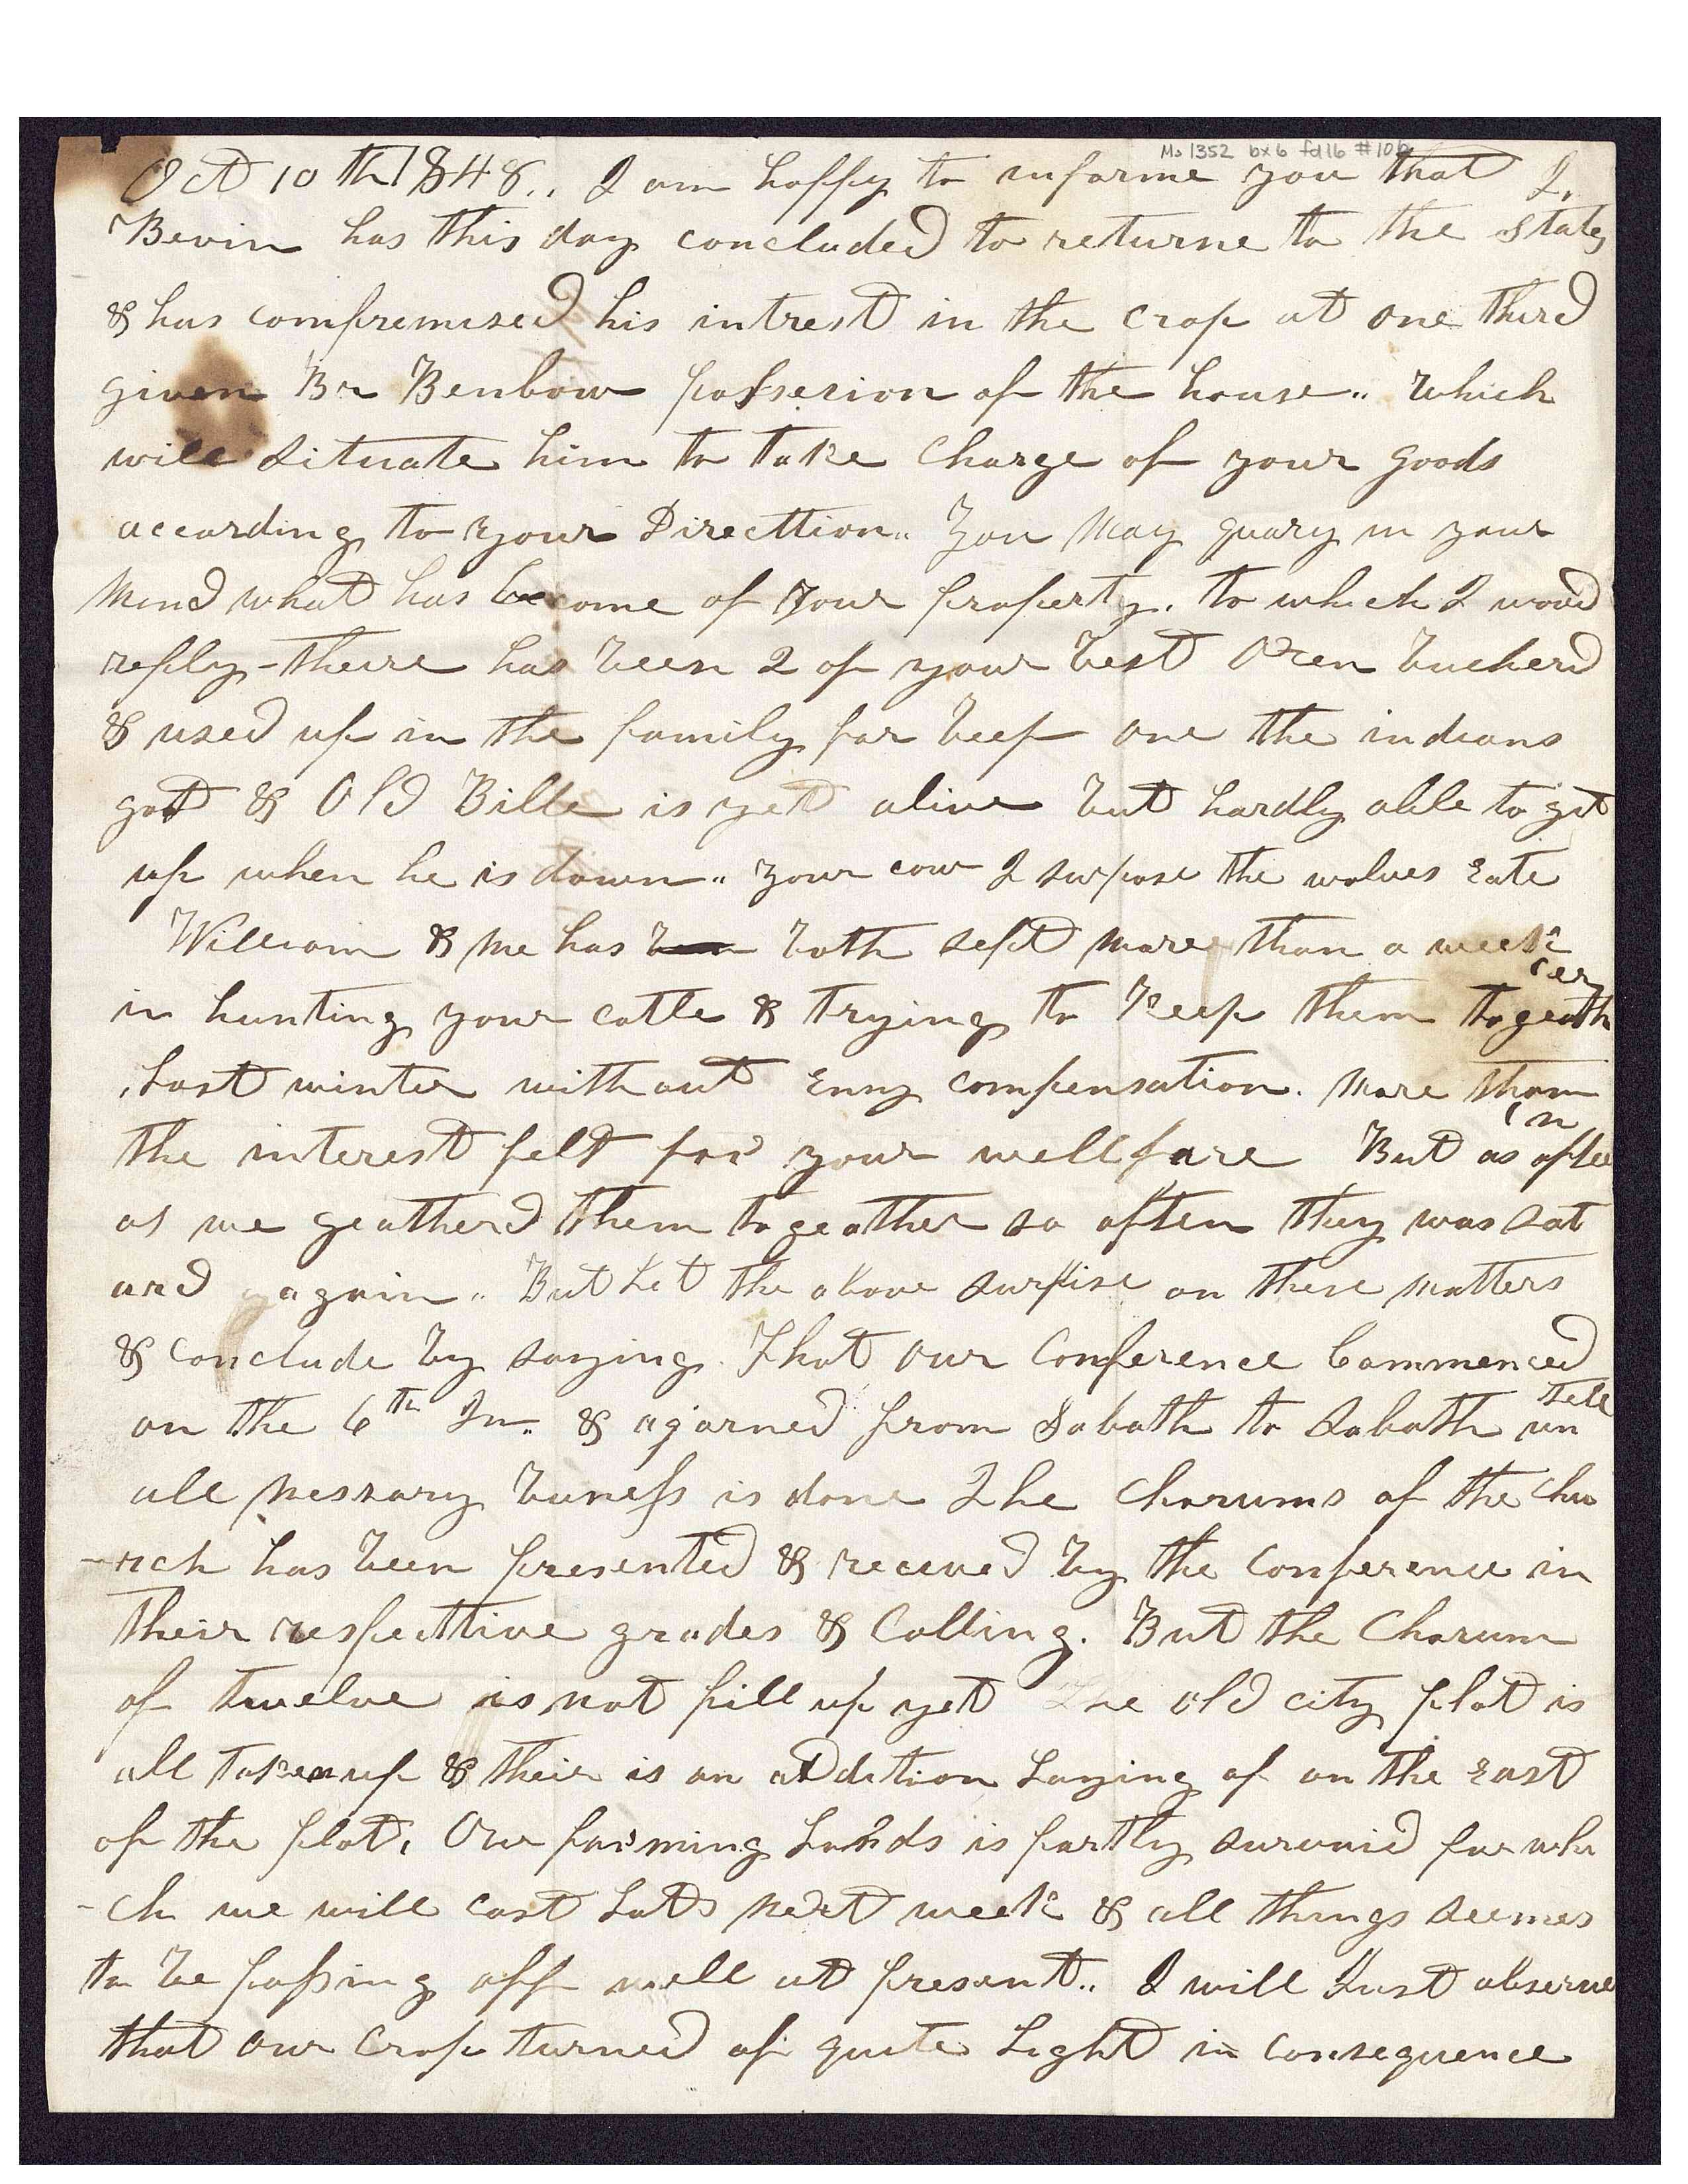 Ms 1352 bx 6 fd 16 #10b
Oct 10 th 1848.. I am happy to informe you that J.
Bevin has this day concluded to returne to the States
& has compremised his intrest in the crop at one third
given Br Benbow possesion of the house.. which
will situate him to take Charge of your goods
according to your Directtion.. You May quary in your
Mind what has become of Your property. to which I woud
reply - theire has been 2 of your best Oxen bucherd
& used up in the family for beef one the indians
got & Old Bille is yet alive but hardly able to git
up when he is down.. your cow I supose the wolves Eate
William & Me has both sept more than a week
in hunting your catle & trying to Keep them togeath
er
Last winter without Enny compensation. More than
the interest felt for your wellfare But as ofte
n
as we geatherd them togeather so often they was scat
erd again.. But Let the above surfise on these matters
& conclude by saying. That our Conference Commenced
on the 6th In.. & ajorned from Sabath to Sabath un
till
all nessary buness is done The Chorums of the Chu
-rch has been presented & receved by the Conference in
their respecttive grades & Calling. But the Chorum
of twelve is not fill up yet The old city plot is
all taken up & their is an addition Laying of on the East
of the plot. Our farming Lands is partly survaid for whi
-ch we will cast Lots next week & all things seemes
to be passing off well at present.. I will Just observe
that our Crop turned of quite Light in consequence